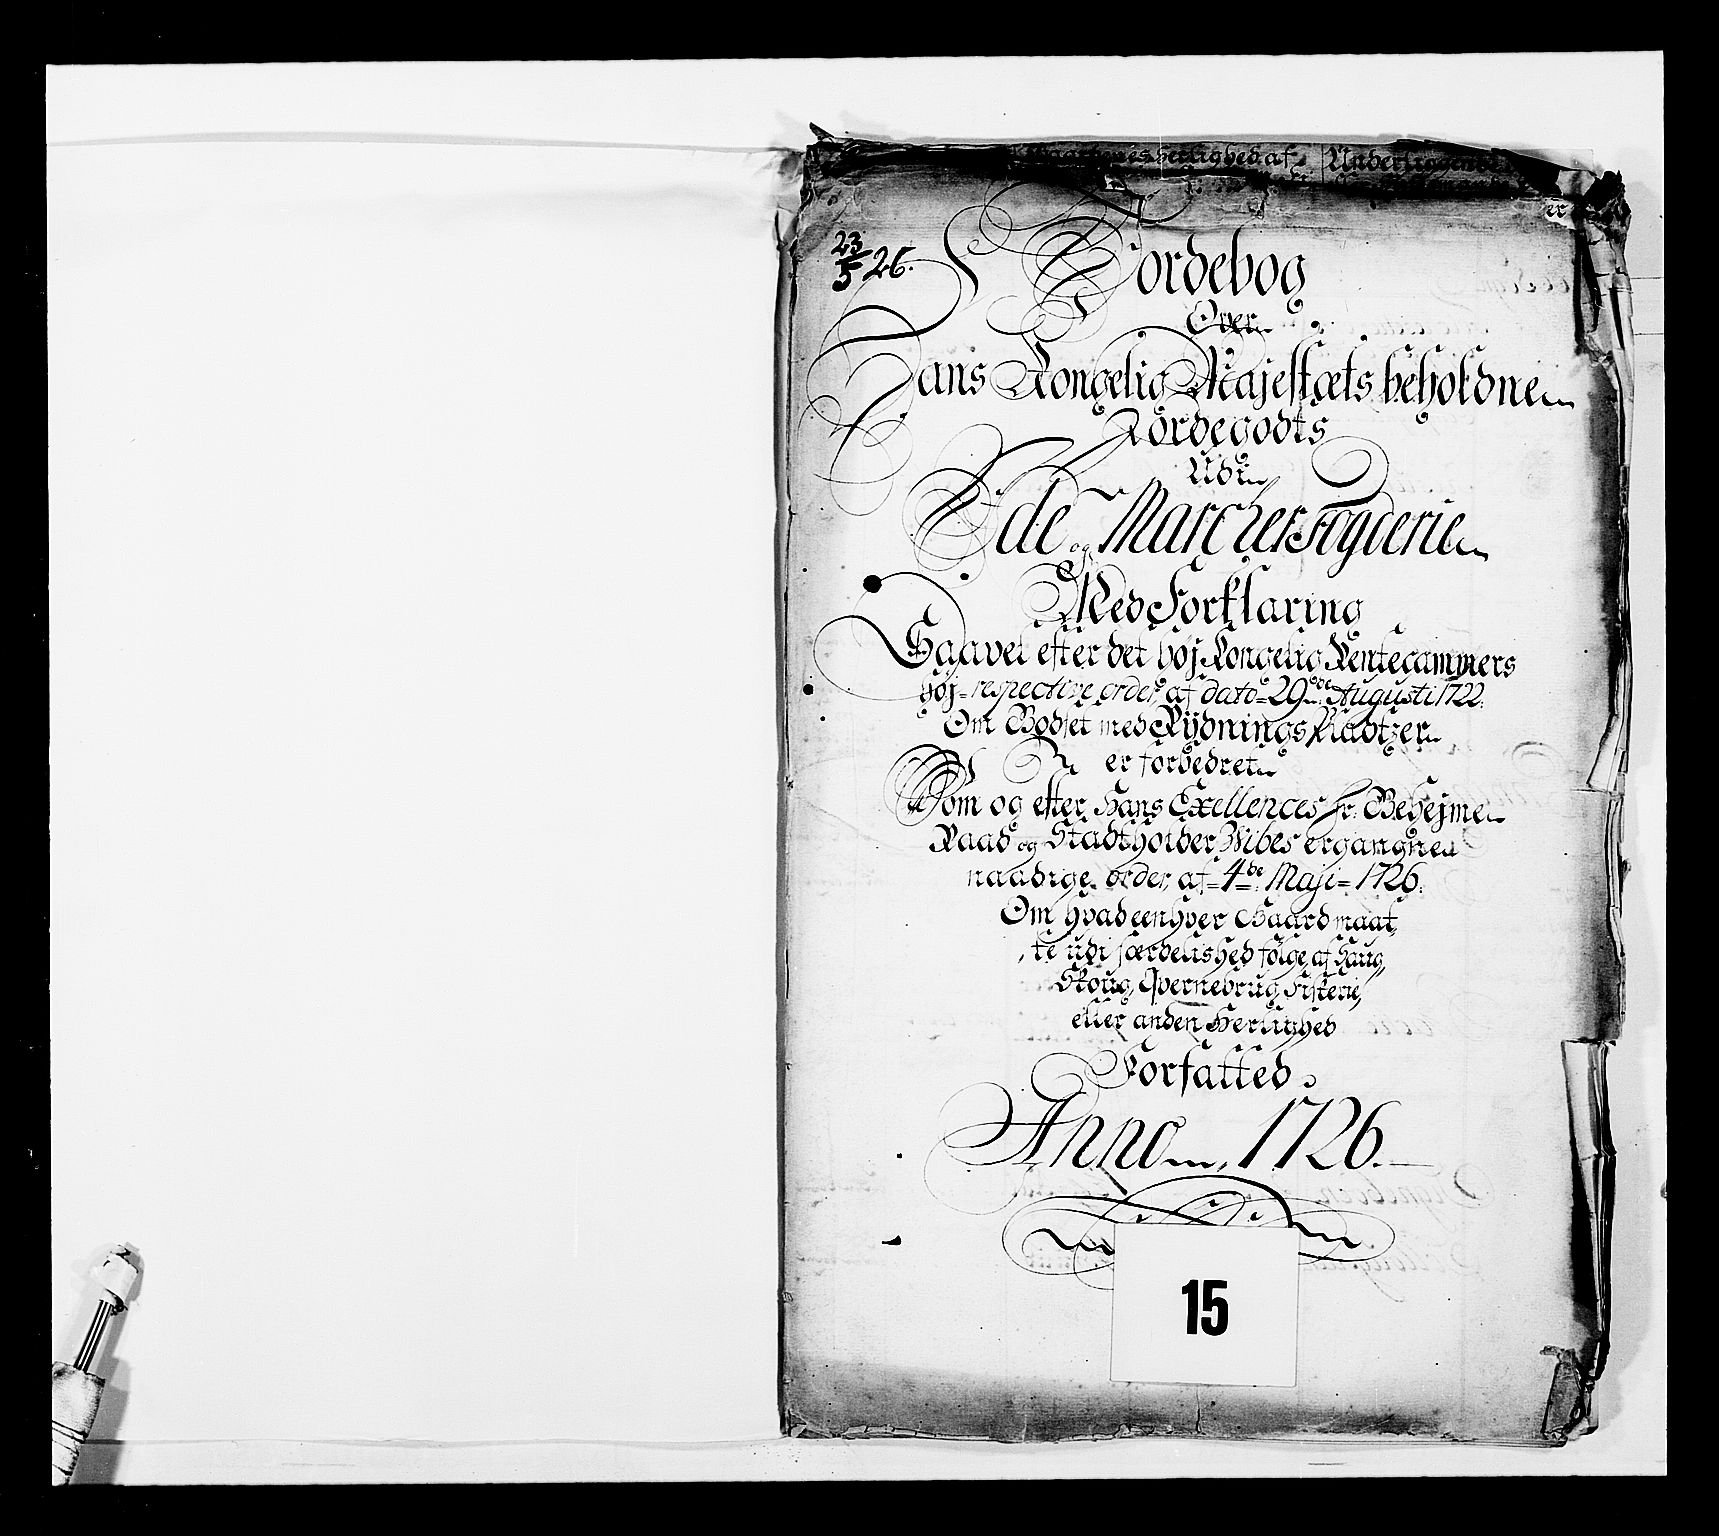 23/5 26.
Jordebog
Over
Hans Kongelig Majestæts beholdne
Jordegodts
Udi
Ide og Marcker Fogderie
Med Forklaring
Saavel efter det høj Kongelig Rentecammers
høj-respective order, af dato-29de: Augusti 1722.
Om Godset med Rydnings Pladtzer
er forbedret
Som og efter Hans Exellences Hr: Geheime
Raad og Stadtholder Wibes ergangne
naadige order, af-4de: Maji-1726.
Om hvad eenhver Gaard maat,
,te udi særdelished følge, af Haug,
Skoug, Qvernebrug, Fiskerie,
eller anden Herlighed
Forfatted
Anno 1726.
15